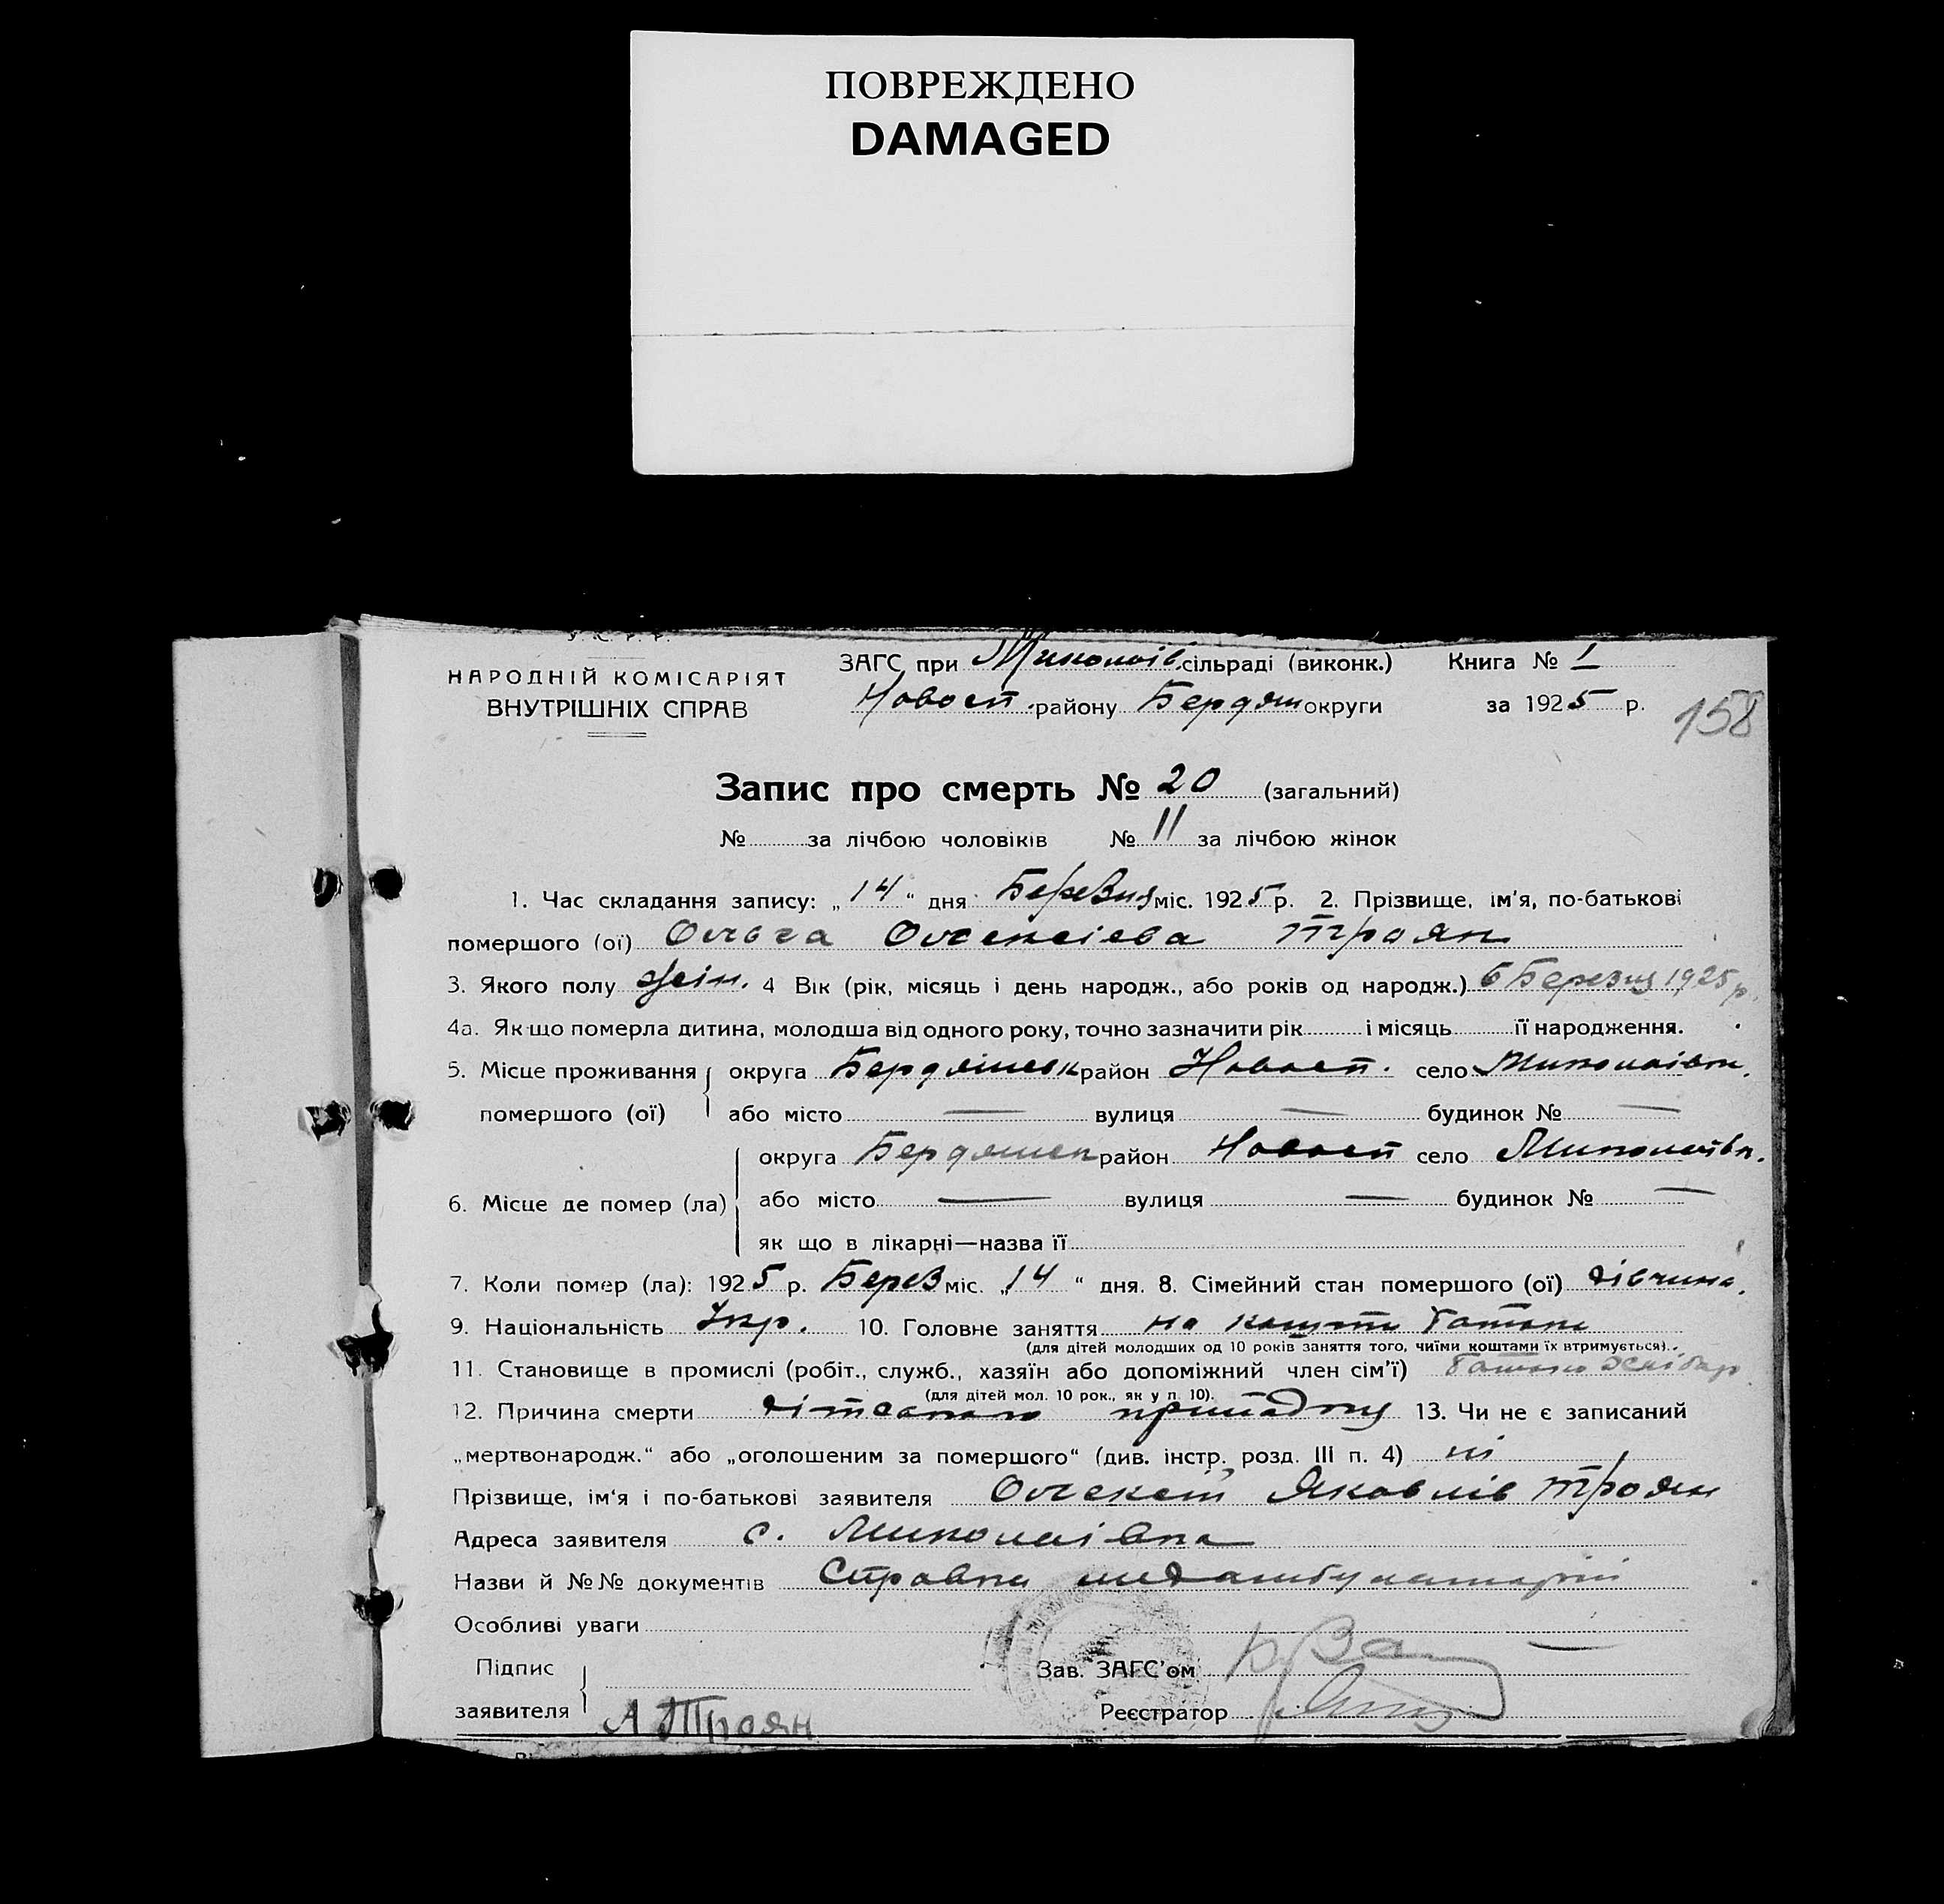 ПОВРЕЖДЕНО
DAMAGED
У. С. Р. Р.
НАРОДНІЙ КОМІСАРІЯТ
ВНУТРІШНІХ СПРАВ
ЗАГС при Миколаїв. сільраді (виконк.) Книга № I
Новосп. району Бердян округи за 1925 р.
158
Запис про смерть № 20 (загальний)
№ за лічбою чоловіків № 11 за лічбою жінок
1. Час складання запису: „14“ дня Березня міс. 1925 р. 2. Прізвище, ім'я, по-батькові
помершого (ої) Ольга Олексієва Троян
3. Якого полу жін. 4 Вік (рік, місяць і день народж., або років од народж.) 6 Березня 1925 р.
4а. Як що померла дитина, молодша від одного року, точно зазначити рік і місяць її народження.
5. Місце проживання помершого (ої) округа Бердянськ район Новосп. село Миколаївк.
або місто — вулиця — будинок № —
6. Місце де помер (ла) округа Бердянск район Новосп село Миколаївк.
або місто — вулиця — будинок № —
як що в лікарні—назва її
7. Коли помер (ла): 1925 р. Берез міс. „14“ дня. 8. Сімейний стан помершого (ої) дівчина.
9. Національність Укр. 10. Головне заняття на кошти батька
(для дітей молодших од 10 років заняття того, чиїми коштами їх втримується).
11. Становище в промислі (робіт., служб., хазяїн або допоміжний член сім'ї) батько хлібор.
(для дітей мол. 10 рок., як у п. 10).
12. Причина смерти дітсакого припадку 13. Чи не є записаний
„мертвонародж.“ або „оголошеним за помершого“ (див. інстр. розд. III п. 4) ні
Прізвище, ім'я і по-батькові заявителя Олексій Яковлів Троян
Адреса заявителя с. Миколаївка
Назви й №№ документів Справка медамбулаторії
Особливі уваги —
Підпис заявителя А Троян
Зав. ЗАГС'ом
Реєстратор